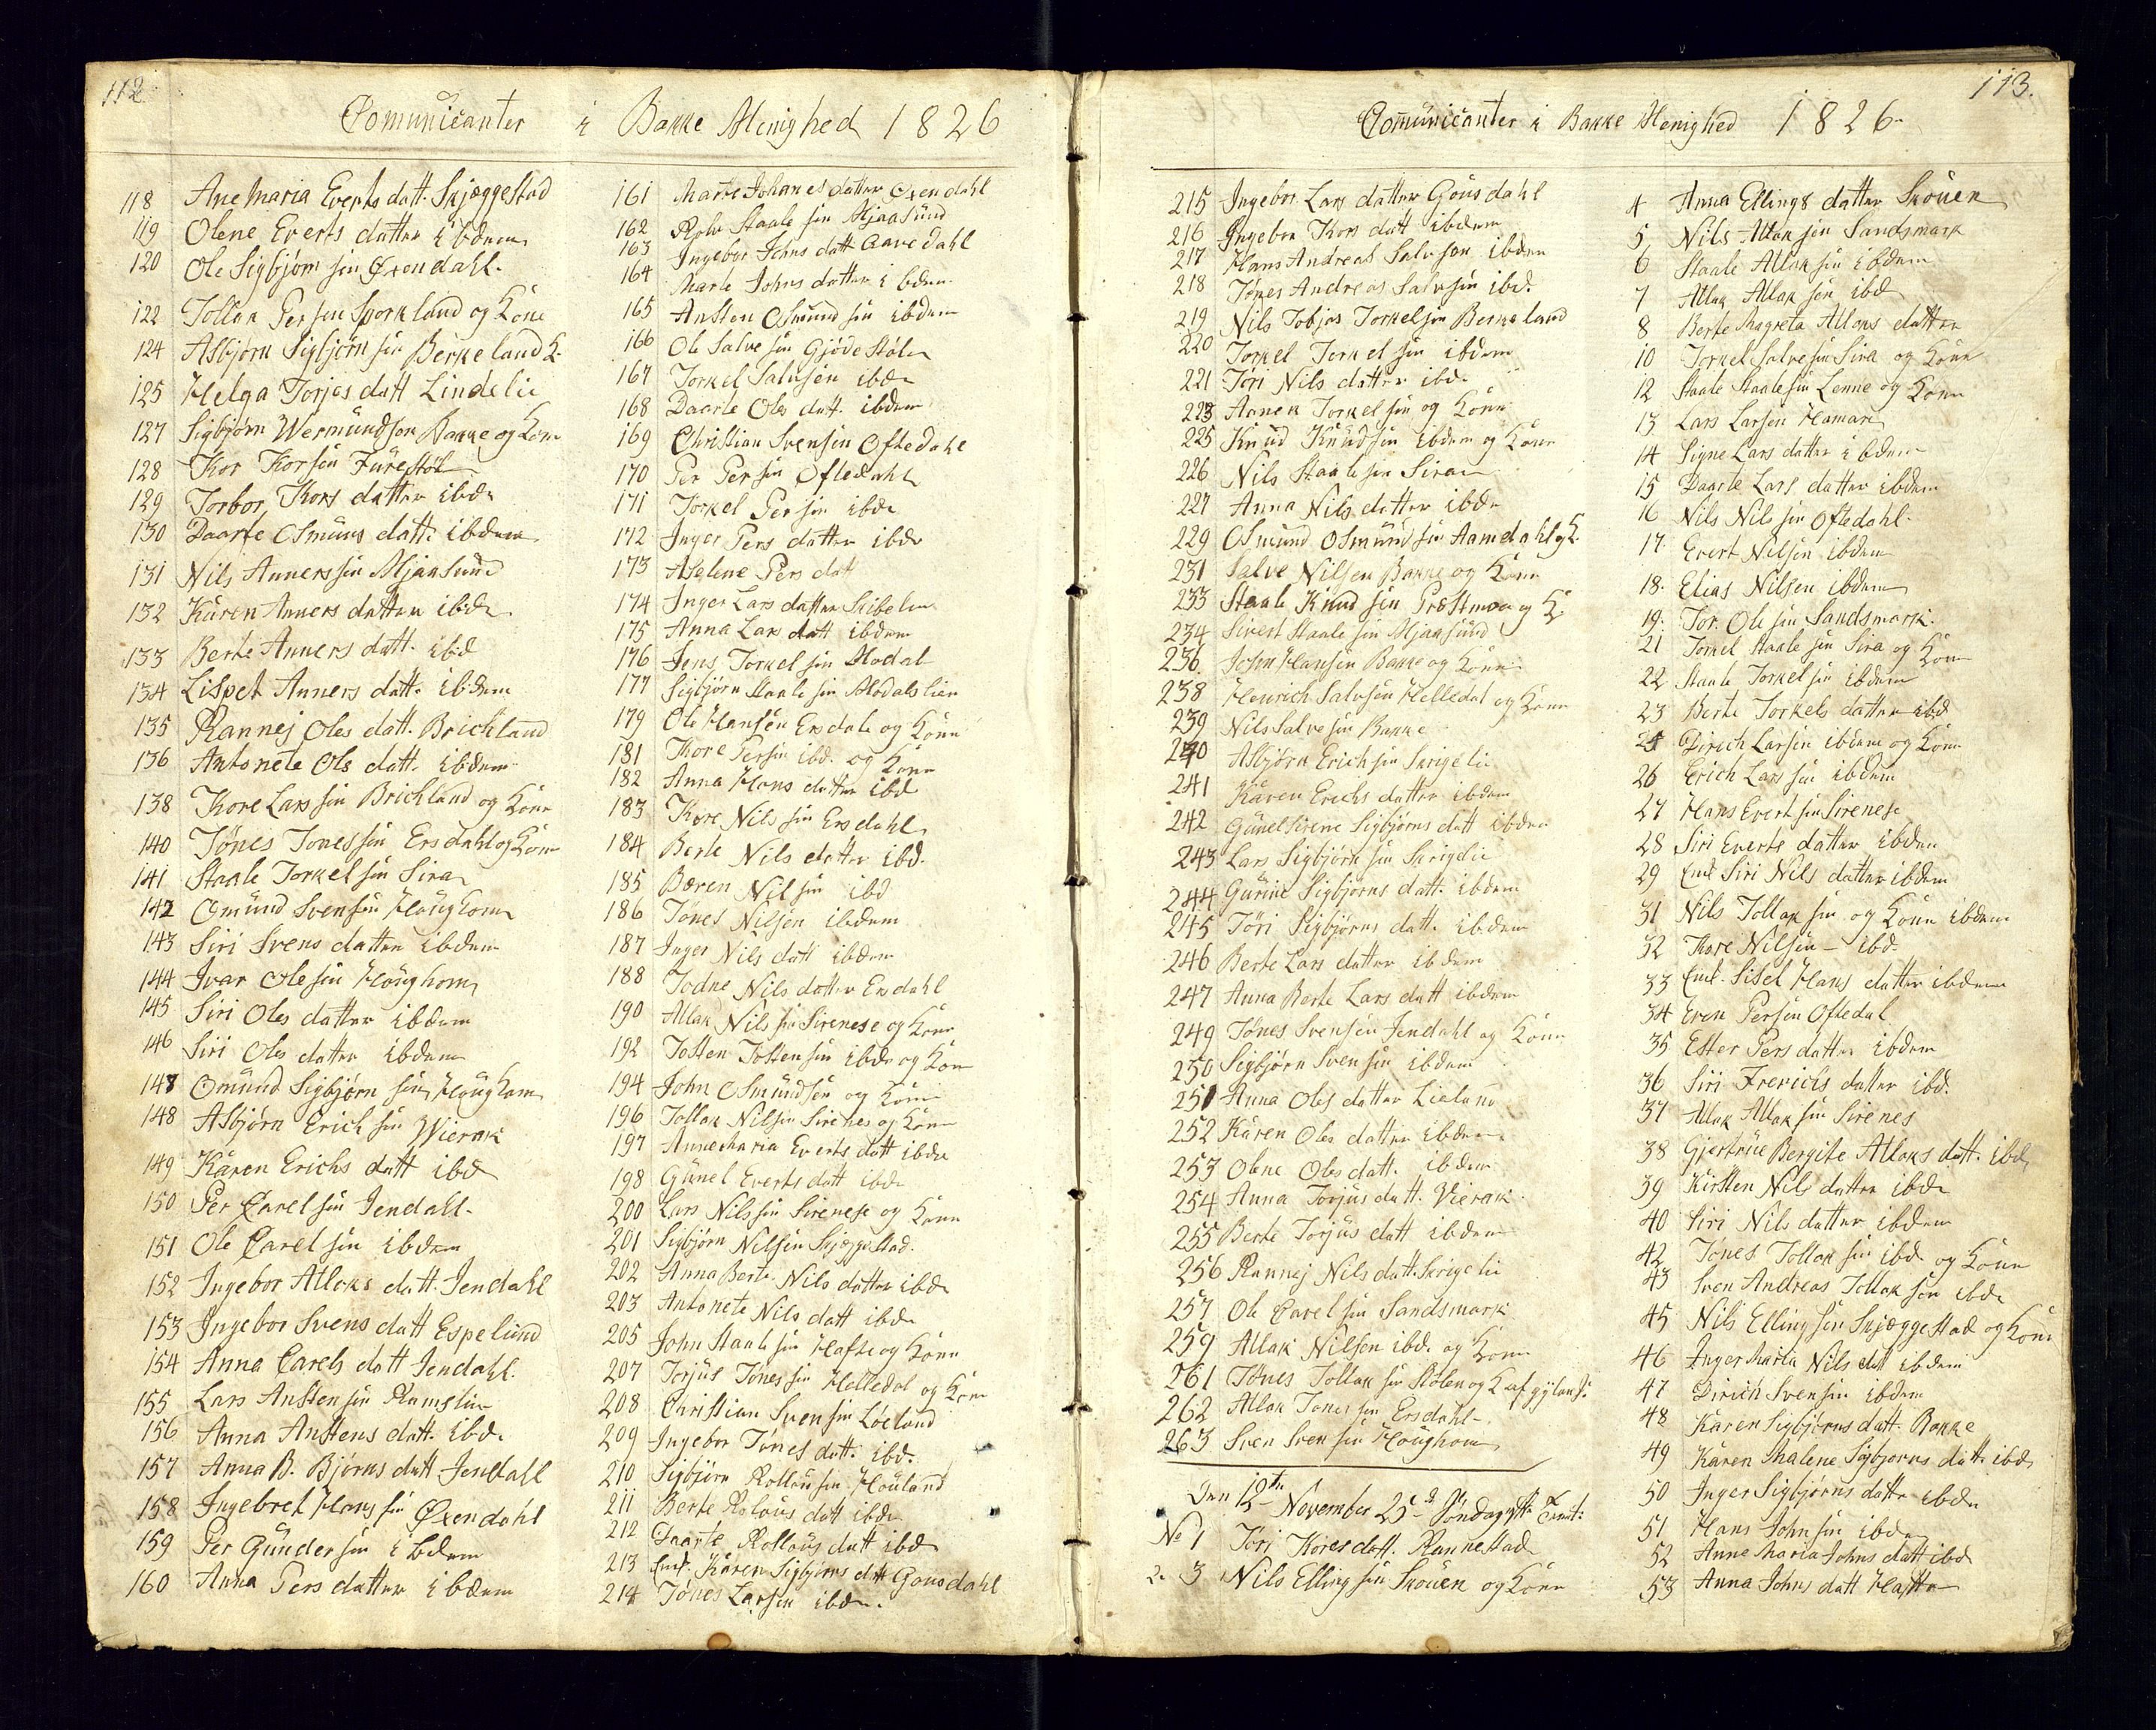 112
Comunicanter i Bakke Menighed 1826
118 Ane Maria Everts datt. Skjæggestad
119 Olene Everts datter ibdem
120 Ole Sigbjørn sin Øxendahl.
122 Tollak Persen Sporkland og Kone
124 Asbjørn Sigbjørn sin Berkeland K.
125 Helga Torjes datt Lindelie
127 Sigbjørn Wermundson Bakke og Kone
128 Kor Korsen Furestøl
129 Torbor Kors datter ibde
130 Daarte Osmuns datt. ibdem
131 Nils Annerssin Mjaasund
132 Karen Anners datter ibde
133 Berte Anners datt. ibd
134 Lispet Anners datt. ibdem
135 Rannej Oles datt. Brichland
136 Antonete Ols datt. ibdem
138 Kore Lars sin Brichland og Kone
140 Tønes Tonessin Ersdahl og Kone
141 Staale Torkel sin Sira
142 Omund Svensin Houghom
143 Siri Svens datter ibdem
144 Ivar Ole sin Houghom
145 Siri Oles datter ibdem
146 Siri Ols datter ibdem
148 Omund Sigbjørn sin Houghom
148 Asbjørn Erich sin Wierak
149 Karen Erichs datt ibd
150 Per Carel sin Jendahl.
151 Ole Carel sin ibdem
152 Ingebor Atlaks datt. Jendahl
153 Ingebor Svens datt Espelund
154 Anna Carels datt Jendahl.
155 Lars Ansten sin Ramslie
156 Anna Anstens datt. ibd.
157 Anna B. Bjørns datt Jendahl
158 Ingebret Hans sin Øxendahl
159 Per Gunder sin ibdem
160 Anna Pers datter ibdem
161 Marte Johanes datter Øxendahl
162 Rolv Staale sin Mjaasund
163 Ingebor Johns datt Aavedahl
164 Marte Johns datter ibdem
165 Ansten Osmund sin ibdem
166 Ole Salve sin Gjødestølen
167 Torkel Salvsen ibde
168 Daarte Oles datt. ibdem
169 Christian Svensin Oftedahl
170 Per Per sin Oftedahl
171 Torkel Per sin ibde
172 Inger Pers datter ibde
173 Aselene Pers datt
174 Inger Lars datter Sibelien
175 Anna Lars datt ibdem
176 Jens Torkel sin Modal
177 Sigbjørn Staale sin Modalslien
179 Ole Hansen Ersdale og Konn
181 Thore Persin ibd. og Konn
182 Anna Hans datter ibd
183 Kore Nils sin Ersdahl
184 Berte Nils datter ibd.
185 Bæren Nil sin ibd
186 Tønes Nilsen ibdem
187 Inger Nils datt ibdem
188 Todne Nils datter Ersdahl
190 Atlak Nils sin Sirenese og Kone
192 Tosten Tosten sin ibde og Kon
194 John Osmundsen og Kone
196 Tollak Nilsen Sirenes og Kone
197 Anne Maria Everts datt ibde
198 Gunel Everts datt ibde
200 Lars Nilssin Sirenese og Konn
201 Sigbjørn Nilsen Skjæggestad.
202 Anna Berte Nils datter ibde
203 Antonete Nils datt ibde
205 John Staale sin Hafte og Konn
207 Torjus Tønes sin Helledal og Kone
208 Christian Svensin Løeland
209 Ingebor Tønes datt. ibd.
210 Sigbjørn Rollousin Houland
211 Berte Rolous datt ibde
212 Daarte Rollous datt ibd
213 Enk. Karen Sigbjørns datt Gousdahl
214 Tønes Larsin ibde.
113.
Comunicanter i Bakke Menighed 1826
215 Ingebor Lars datter Gousdahl
216 Ingebor Kors datt ibdem
217 Hans Andreas Salvson ibdem
218 Tønes Andreas Salvsin ibd.
219 Nils Tobjas Torkelsin Berkeland
220 Torkel Torkel sin ibdem
221 Tøri Nils datter ibd.
223 Anner Torkel sin og Konn
225 Knud Knudsin ibdem og Konn
226 Nils Staale sin Sira
227 Anna Nils datter ibde
229 Osmund Osmund sin Aamdahl og K.
231 Salve Nilsen Bakke og Konn
233 Staale Knud sin Præstmoe og K.
234 Sivert Staale sin Mjaasund
236 John Hansen Bakke og Konn
238 Henrich Salvsen Helledal og Konn
239 Nils Salvesin Bakke
240 Asbjørn Erichsin Skrigelie
241 Karen Erichs datter ibdem
242 Gunel Sirene Sigbjørns datt ibdem
243 Lars Sigbjørn sin Skrigelie
244 Gurine Sigbjørns datt. ibdem
245 Tøri Sigbjørns datt. ibdem
246 Berte Lars datter ibdem
247 Anna Berte Lars datt ibdem
249 Tønes Svensen Jendahl og Konn
250 Sigbjørn Svensin ibdem
251 Anna Oles datter Lieland
252 Karen Oles datter ibdem
253 Olene Oles datt. ibdem
254 Anna Torjus datt. Vierak.
255 Berte Torjus datt ibdem
256 Rannej Nils datt. Skrigelie
257 Ole Carel sin Sandsmark
259 Atlak Nilsen ibde og Konn
261 Tønes Tollak sin Stølen og K af gyland:
262 Atlak Tones sin Ersdahl.
263 Sven Sven sin Houghom
Den 12te November 25de Søndag efter Trinit:
No 1 Tøri Kores datt. Rannestad
2. 3 Nils Elling sin Skouen og Konn
4 Anna Ellings datter Skouen
5 Nils Atlak sin Sandsmark
6 Staale Atlak sin ibdem
7 Atlak Atlak sin ibd
8 Berte Magreta Atlaks datter
10 Torkel Salvesin Sira og Konn
12 Staale Staalesin Lenne og Konn
13 Lars Larsen Hamar
14 Signe Lars datter ibdem
15 Daarte Lars datter ibdem
16 Nils Nils sin Oftedahl.
17 Evert Nilsen ibdem
18. Elias Nilsen ibdem
19. Tor Ole sin Sandsmark.
21 Torkel Staale sin Sira og Kon
22 Staale Torkel sin ibdem
23 Berte Torkels datter ibd
25 Dirich Larsen ibdem og Konn
26 Erich Lars sin ibdem
27 Hans Evert sin Sirenese
28 Siri Everts datter ibdem
29 Enk Siri Nils datter ibdem
31 Nils Tollak sin og Konn ibdem
32 Thore Nilsen - ibd.
33 Enk. Sisel Hans datter ibdem
34 Even Persin Oftedal
35 Ester Pers datter ibdem
36 Siri Frerichs datter ibd.
37 Atlak Atlak sin Sirenes
38 Gjertrue Bergite Atlaks datt. ibd
39 Kirsten Nils datter ibde
40 Siri Nils datter ibdem
42 Tønes Tollak sin ibd og Konn
43 Sven Andreas Tollak sin ibde
45 Nils Ellingsen Skjæggestad og Konn
46 Inger Maria Nils datt ibdem
47 Dirich Svensin ibdem
48 Karen Sigbjørns datt. Bakke
49 Karen Malene Sigbjørns datt ibd
50 Inger Sigbjørns datter ibde
51 Hans John sin ibde
52 Anne Maria Johns datt ibd
53 Anna Johns datt Hafte